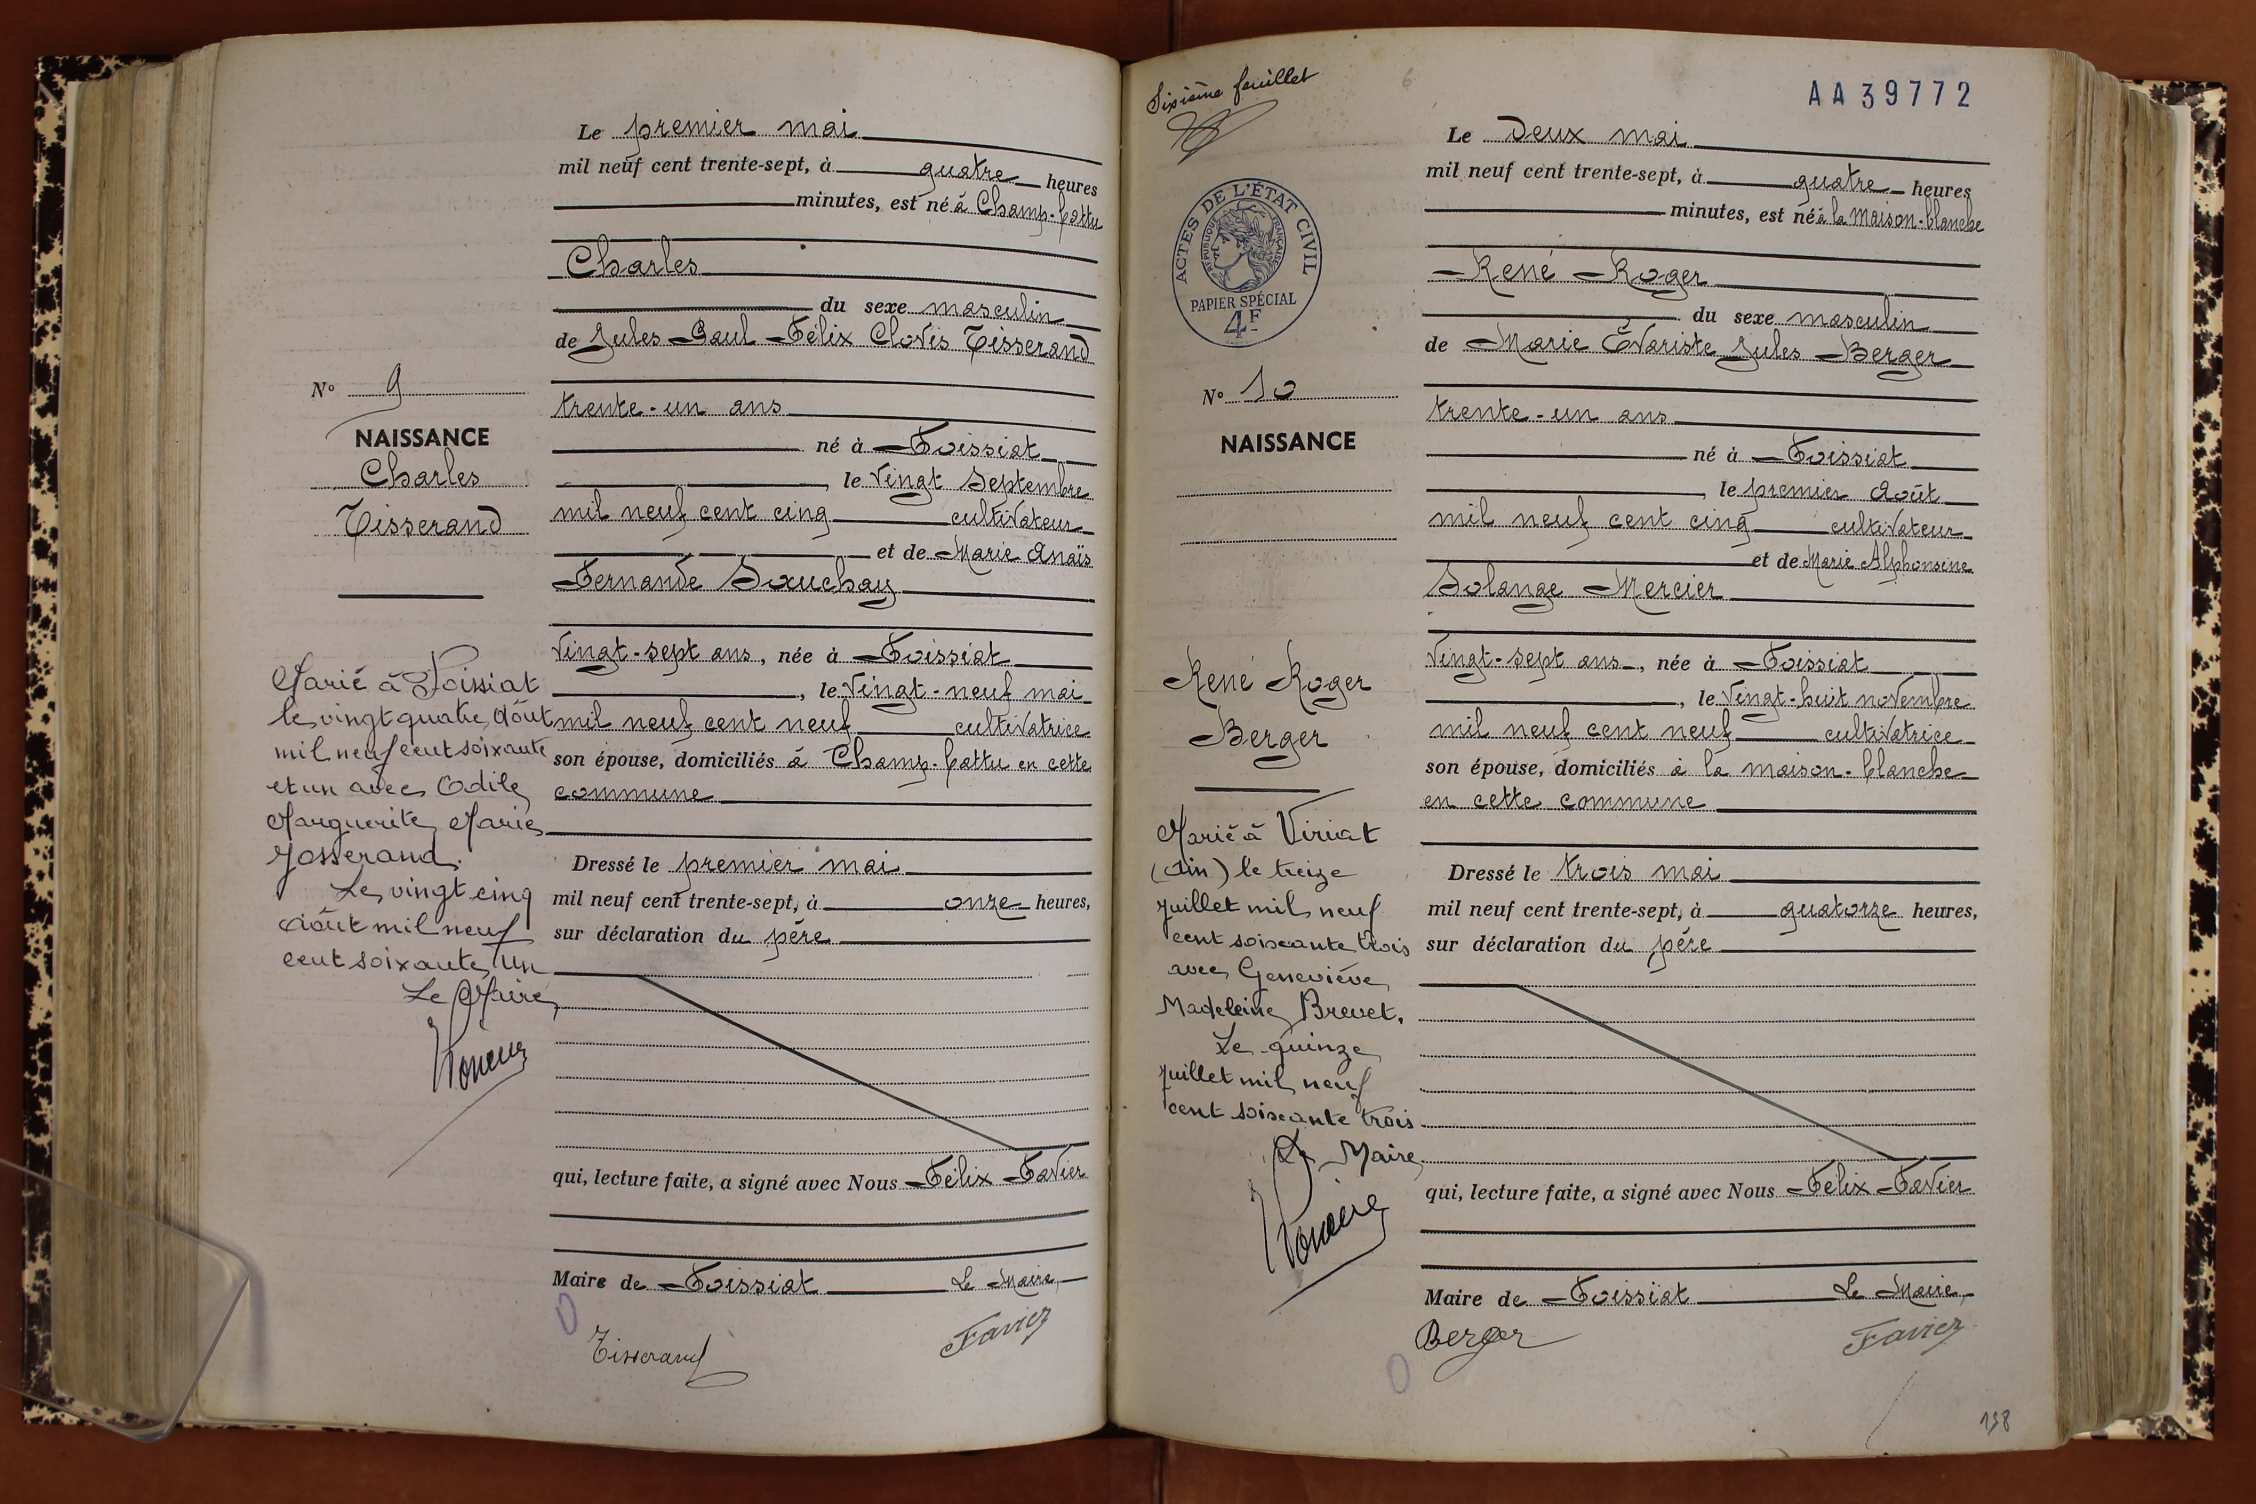 Le premier mai
mil neuf cent trente-sept, à quatre heures
minutes, est né à Champ-battu
Charles
du sexe masculin
de Jules Paul Félix Clovis Tisserand
trente-un ans
né à Foissiat
le vingt Septembre
mil neuf cent cinq cultivateur
et de Marie Anaïs
Fernande Souchay
vingt-sept ans, née à Foissiat
, le vingt-neuf mai
mil neuf cent neuf cultivatrice
son épouse, domiciliés à Champ-battu en cette
commune
Dressé le premier mai
mil neuf cent trente-sept, à onze heures,
sur déclaration du père
qui, lecture faite, a signé avec Nous Félix Favier
Maire de Foissiat Le Maire,
Tisserand Favier
N° 9
NAISSANCE
Charles
Tisserand
Marié à Foissiat
le vingt quatre Août
mil neuf cent soixante
et un avec Odile
Marguerite Marie
Josserand.
Le vingt cinq
Août mil neuf
cent soixante un
Le Maire
Sixième feuillet
6
AA39772
Le deux mai
mil neuf cent trente-sept, à quatre heures
minutes, est né à la maison-blanche
René Roger
du sexe masculin
de Marie Évariste Jules Berger
trente-un ans
né à Foissiat
, le premier Août
mil neuf cent cinq cultivateur
et de Marie Alphonsine
Solange Mercier
vingt-sept ans, née à Foissiat
, le vingt-huit novembre
mil neuf cent neuf cultivatrice
son épouse, domiciliés à la maison-blanche
en cette commune
Dressé le trois mai
mil neuf cent trente-sept, à quatorze heures,
sur déclaration du père
qui, lecture faite, a signé avec Nous Félix Favier
Maire de Foissiat Le Maire,
Berger Favier
ACTES DE L'ÉTAT CIVIL
RÉPUBLIQUE FRANÇAISE
PAPIER SPÉCIAL
4F
N° 10
NAISSANCE
René Roger
Berger
Marié à Viriat
(Ain) le treize
juillet mil neuf
cent soixante trois
avec Geneviève
Madeleine Brevet.
Le quinze
juillet mil neuf
cent soixante trois
Le Maire
138